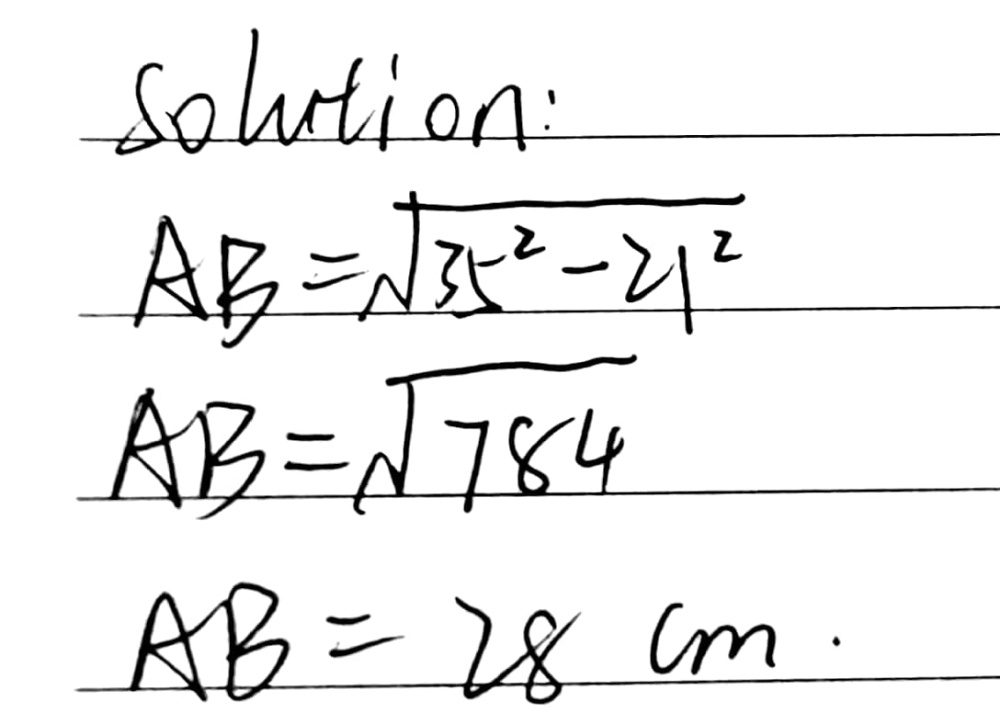 Solution:
AB = √(35² − 21²)
AB = √784
AB = 28 cm.